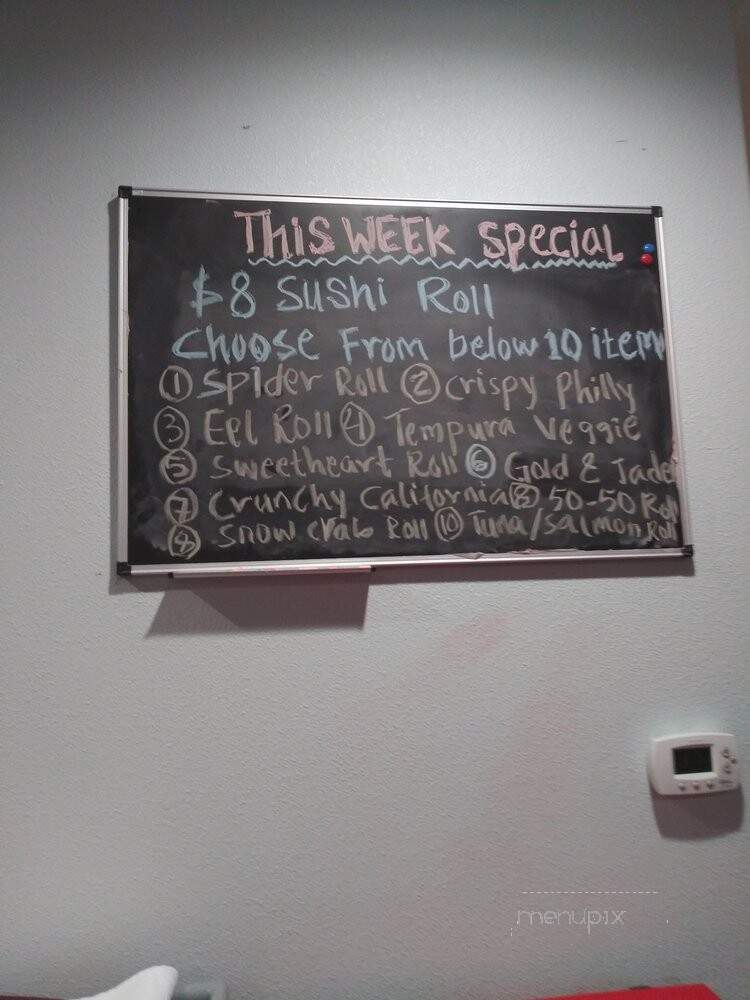 This WEEK special
$8 Sushi Roll
Choose From below 10 item
① Spider Roll ② Crispy Philly
③ Eel Roll ④ Tempura Veggie
⑤ Sweetheart Roll ⑥ Gold & Jade
⑦ Crunchy California ⑧ 50-50 Roll
⑨ Snow Crab Roll ⑩ Tuna/Salmon Roll
menupix